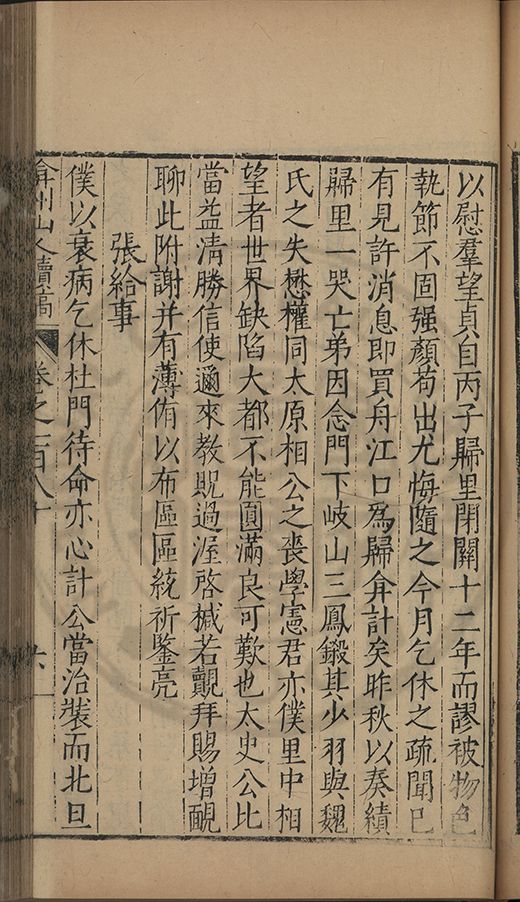 以慰羣望貞自丙子歸里閉關十二年而謬被物色
執節不固强顏苟出尤悔隨之今月乞休之疏聞已
有見許消息即買舟江口爲歸弇計矣昨秋以奏績
歸里一哭亡弟因念門下岐山三鳳鎩其少羽與魏
氏之失懋權同太原相公之喪學憲君亦僕里中相
望者世界缺陷大都不能圓滿良可歎也太史公比
當益淸勝信使邇來教貺過渥啓椷若覿拜賜增靦
聊此附謝并有薄侑以布區區統祈鑒亮
張給事
僕以衰病乞休杜門待命亦心計公當治裝而北旦
弇州山人續稿 卷之一百八十 六